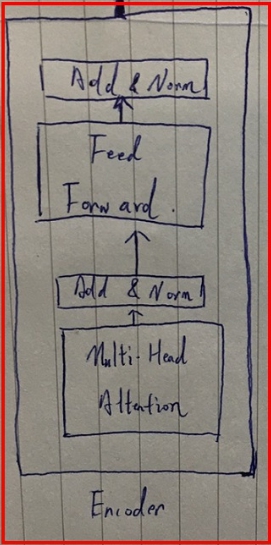 Add & Norm
Feed
Forward.
Add & Norm
Multi-Head
Attention
Encoder